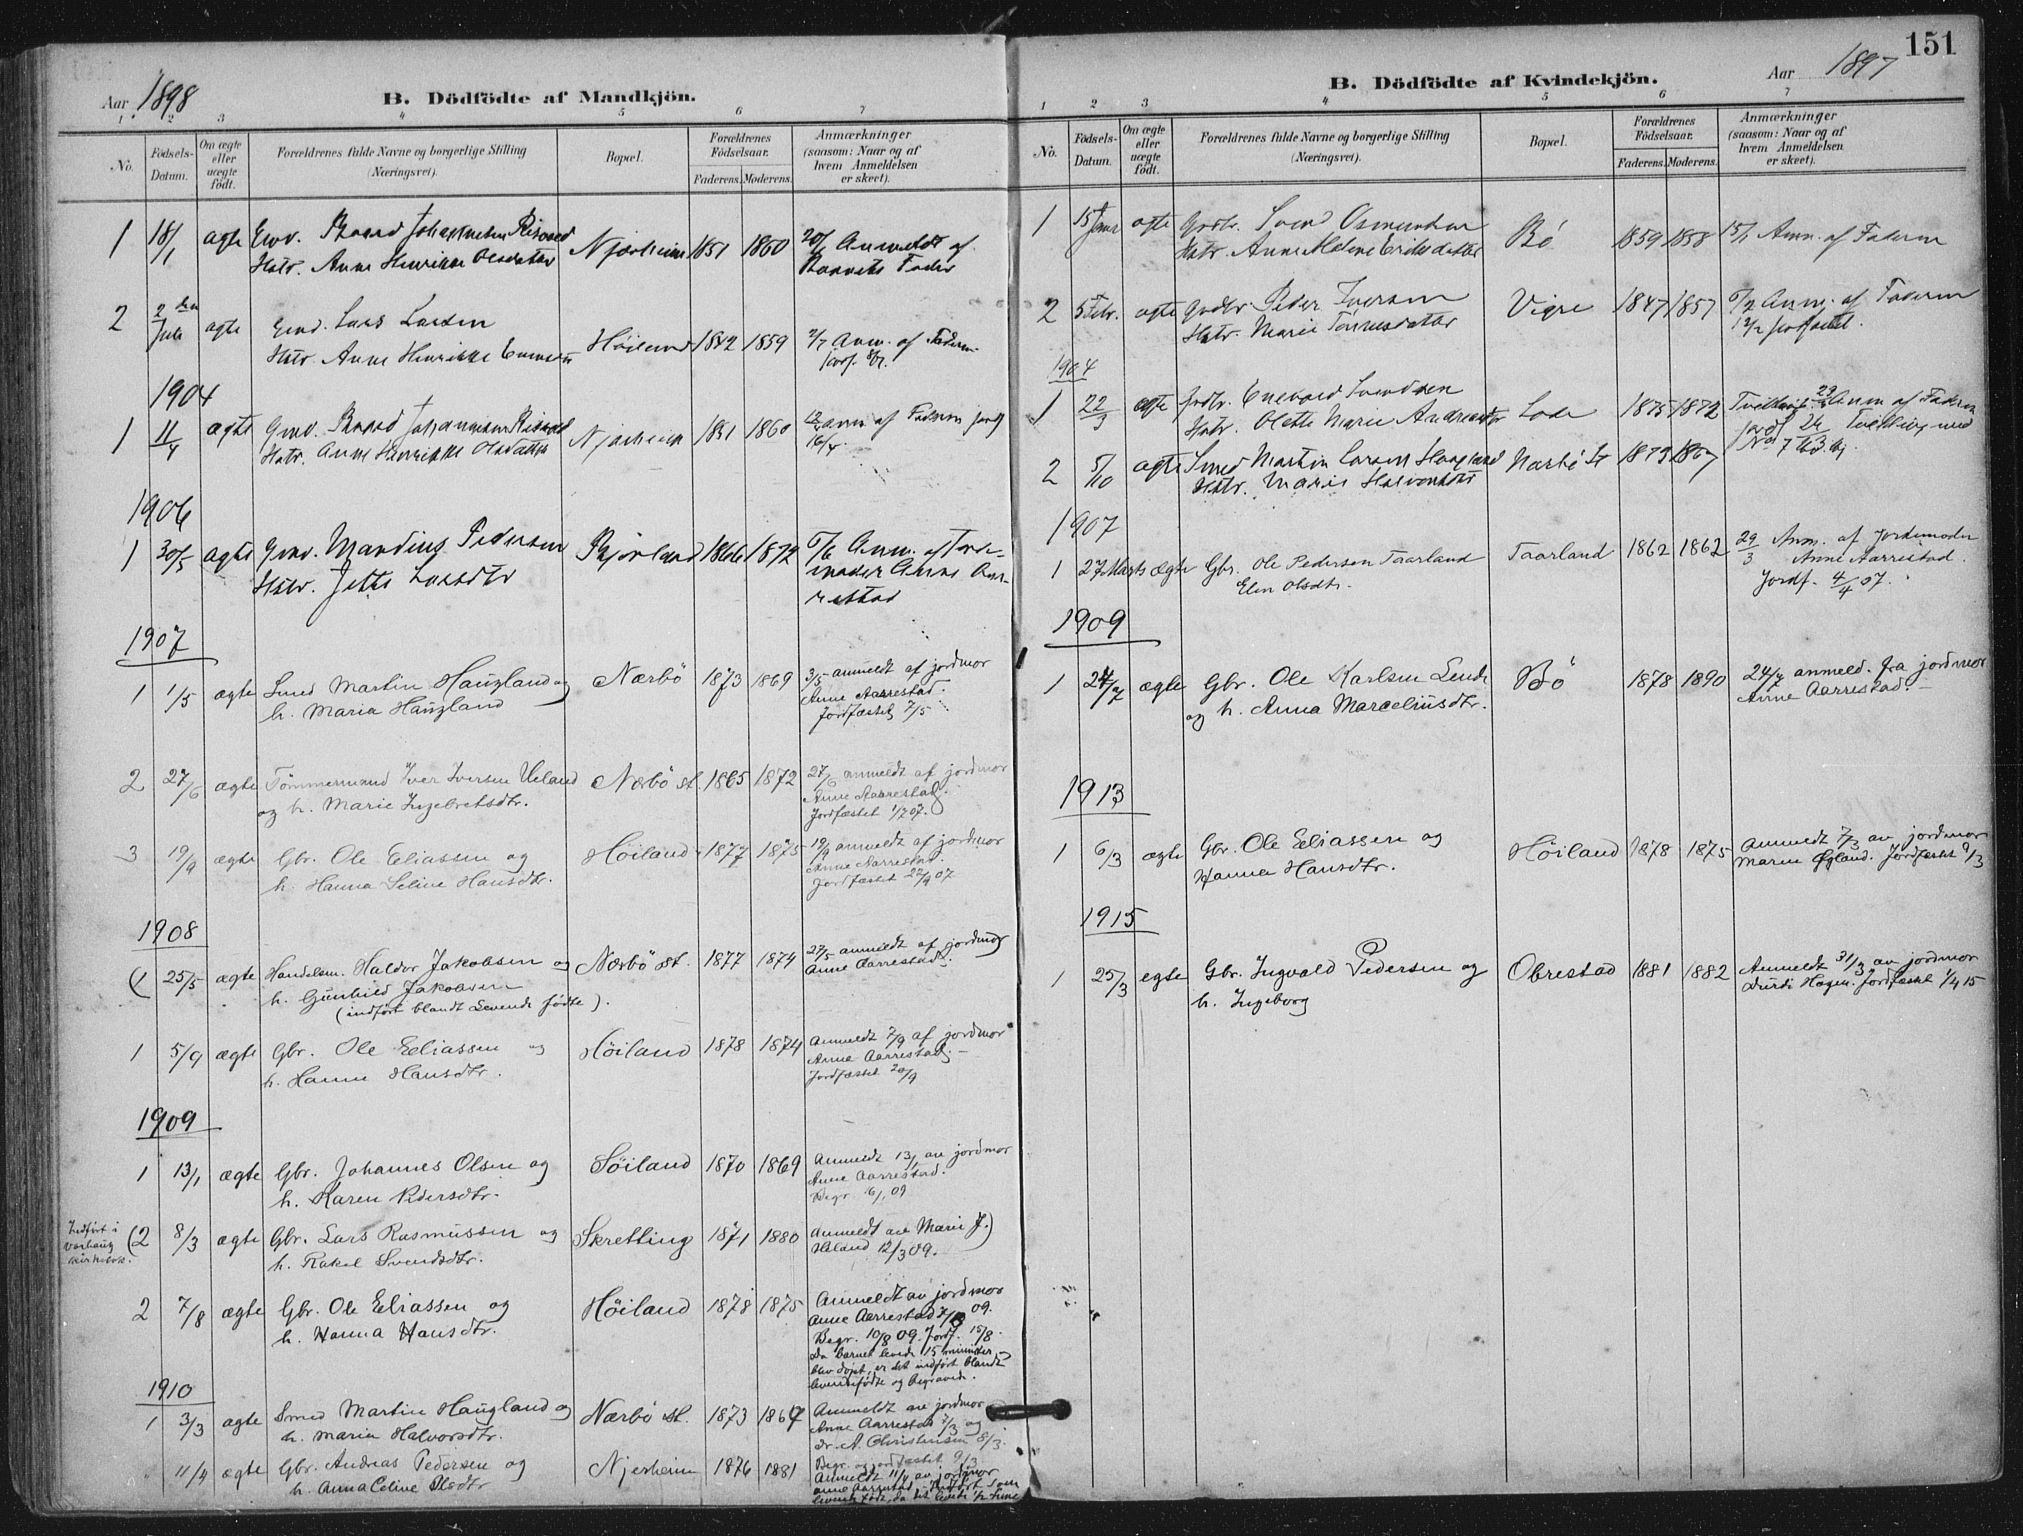 Aar 1898
B. Dödfödte af Mandkjön.
1 2 3 4 5 6 7
No.
Födsels-Datum.
Om ægte eller uægte födt.
Forældrenes fulde Navne og borgerlige Stilling (Næringsvei).
Bopæl.
Forældrenes Födselsaar.
Faderens. Moderens.
Anmærkninger (saasom: Naar og af hvem Anmeldelsen er skeet).
1 18/1 ægte Gmd. Baard Johannesen Njærheim 1851 1860 Anmeldt af
Hstr. Anne Henrikke Olsdatter Barnets Fader
2 2den Juli ægte Gmd. Lars Larsen
Hstr. Anne Henrikke Høiland 1842 1859 2/7 Anm. af Faderen
1904
1 11/4 ægte Gmd. Baard Johannesen Njærheim 1851 1860 Anm af Faderen
Hstr. Anne Henrikke Olsdatter 16/4.
1906
1 30/5 ægte Gmd. Mandius Pedersen Bjorland 1866 1872 6/6 Anm. af Jorde-
Hstr. Jette Larsdtr moder Anne Aar-
restad
1907
1 1/5 ægte Smed Martin Haugland og Nærbö 1873 1869 3/5 anmeldt af jordmor
h. Maria Haugland Anne Aarrestad.
Jordfæstet 7/5
2 27/6 ægte Tömmermand Iver Iversen Ueland Nærbö st. 1865 1872 27/6 anmeldt af jordmor
og h. Marie Ingebretsdtr. Anne Aarrestad.
Jordfæstet 1/7 07.
3 19/9 ægte Gbr. Ole Eliassen og Höiland 1877 1875 19/9 anmeldt af jordmor
h. Hanna Seline Hansdtr. Anne Aarrestad.
Jordfæstet 22/9 07
1908
(1 25/5 ægte Handelsm. Haldor Jakobsen og Nærbö st. 1877 1874 27/5 anmeldt af jordmor
h. Gunhild Jakobsen Anne Aarrestad.
(indført blandt Levende fødte).
1 5/9 ægte Gbr. Ole Eliassen og Höiland 1878 1874 Anmeldt 7/9 af jordmor
h. Hanne Hansdtr. Anne Aarrestad.
Jordfæstet 20/9
1909
1 13/1 ægte Gbr. Johannes Olsen og Söiland 1870 1869 Anmeldt 13/1 av jordmor
h. Karen Pedersdtr. Anne Aarrestad.
Begr. 16/1 09
Indført i Varhaug kirkebok. (2 8/3 ægte Gbr. Lars Rasmussen og Skretting 1871 1880 Anmeldt av Marie J.)
h. Rakel Svendsdtr. Ueland 12/3 09.
2 7/8 ægte Gbr. Ole Eliassen og Höiland 1878 1875 Anmeldt av jordmor
h. Hanna Hansdtr. Anne Aarrestad 7/8 09.
Begr. 10/8 09. Jordf. 15/8.
Da barnet levede 15 minutter
blev døpt, er det indført blandt
levendefødte og begravede.
1910
1 3/3 ægte Smed Martin Haugland og Nærbö st. 1873 1867 Anmeldt av jordmor
h. Maria Halvorsdtr. Anne Aarrestad 7/3 og
dr. A. Christensen 8/3.
Begr. og jordfæstet 9/3.
" 11/4 ægte Gbr. Andreas Pedersen og Njerheim 1876 1881 Anmeldt 11/4 av jordmor
h. Anna Celine Olsdtr Anne Aarrestad. Indført som
levende født, da det levede 1/2 time
151
B. Dödfödte af Kvindekjön.
Aar 1897
1 2 3 4 5 6 7
No.
Födsels-Datum.
Om ægte eller uægte födt.
Forældrenes fulde Navne og borgerlige Stilling (Næringsvei).
Bopæl.
Forældrenes Födselsaar.
Faderens. Moderens.
Anmærkninger (saasom: Naar og af hvem Anmeldelsen er skeet).
1 15 Janr ægte Gmdbr. Svend Osmundsen Bö 1859 1858 15/1 Anm. af Faderen
Hstr. Anne Malene Eriksdatter
2 5 Febr. ægte Gmdbr. Peder Iversen Vigre 1847 1857 6/2 Anm. af Faderen
Hstr. Marie Tönnesdatter
1904
1 22/3 ægte Gmdbr. Enevald Svendsen Lode 1875 1872 Anm af Faderen
Hstr. Olette Marie Andreasdtr Tvilling med
No 7
2 5/10 ægte Smed Martin Larsen Haugland Nærbö St 1873 1867
Hstr. Marie Halvorsdtr
1907
1 27 Marts ægte Gbr. Ole Pedersen Taarland Taarland 1862 1862 29/3 Anm. af Jordemoder
Elen Olsdtr. Anne Aarrestad.
Jordf. 4/4 07.
1909
1 24/7 ægte Gbr. Ole Karlsen Lende Bö 1878 1890 24/7 anmeld. fra jordmor
og h. Anna Marceliusdtr. Anne Aarrestad.
1913
1 6/3 ægte Gbr. Ole Eliassen og Höiland 1878 1875 Anmeldt 7/3 av jordmor
Hanna Hansdtr. Maren Øgland. Jordfæstet 9/3
1915
1 25/3 egte Gbr. Ingvald Pedersen og Obrestad 1881 1882 Anmeldt 31/3 av jordmor
h. Ingeborg Durdi Hagen. Jordfæstet 1/4 15